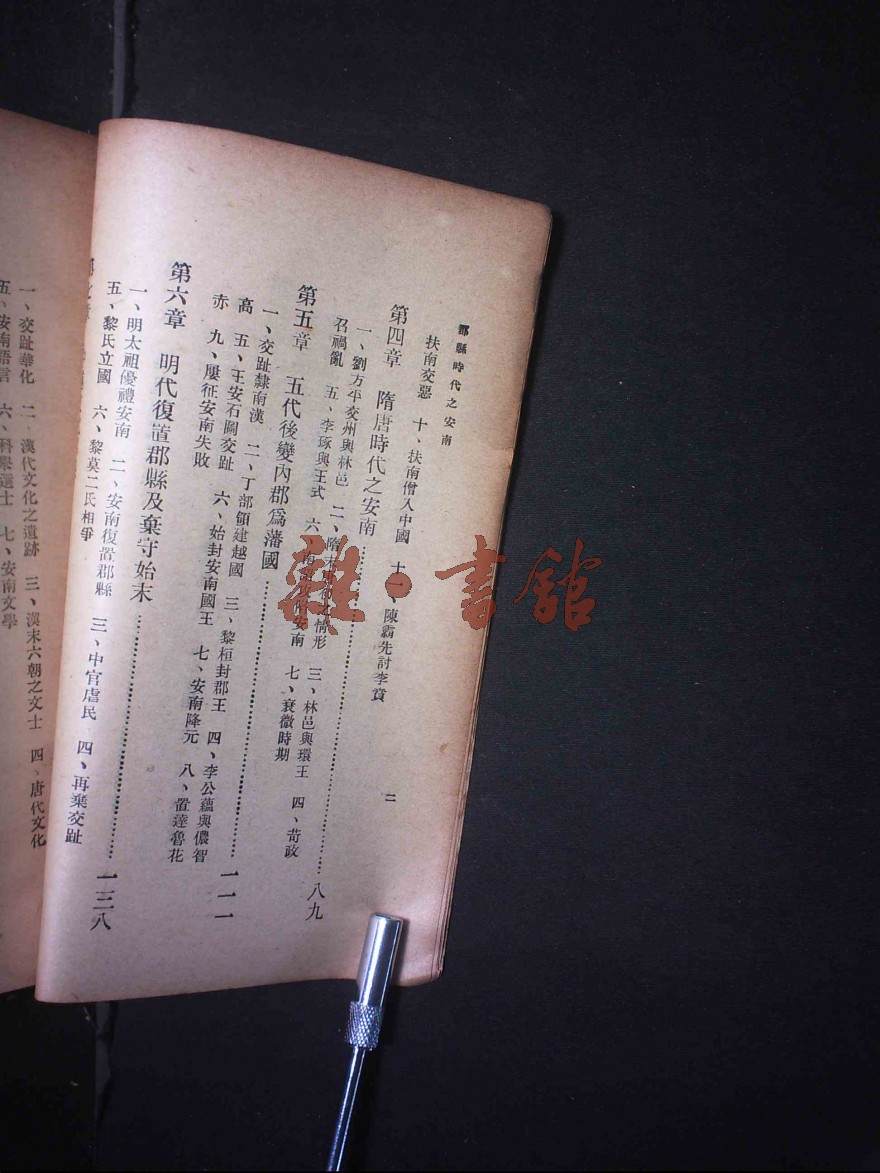 郡縣時代之安南
扶南交惡　十、扶南僧入中國　十一、陳霸先討李賁
二
第四章　隋唐時代之安南……八九
一、劉方平交州與林邑　二、隋末　情形　三、林邑與環王　四、苛政
召禍亂　五、李琢與王式　六、安南　七、衰微時期
第五章　五代後變內郡爲藩國……一一一
一、交趾隸南漢　二、丁部領建越國　三、黎桓封郡王　四、李公蘊與儂智
高　五、王安石圖交趾　六、始封安南國王　七、安南降元　八、置達魯花
赤　九、屢征安南失敗
第六章　明代復置郡縣及棄守始末……一三八
一、明太祖優禮安南　二、安南復置郡縣　三、中官虐民　四、再棄交趾
五、黎氏立國　六、黎莫二氏相爭
一、交趾華化　二、漢代文化之遺跡　三、漢末六朝之文士　四、唐代文化
五、安南語言　六、科舉選士　七、安南文學
雜·書館